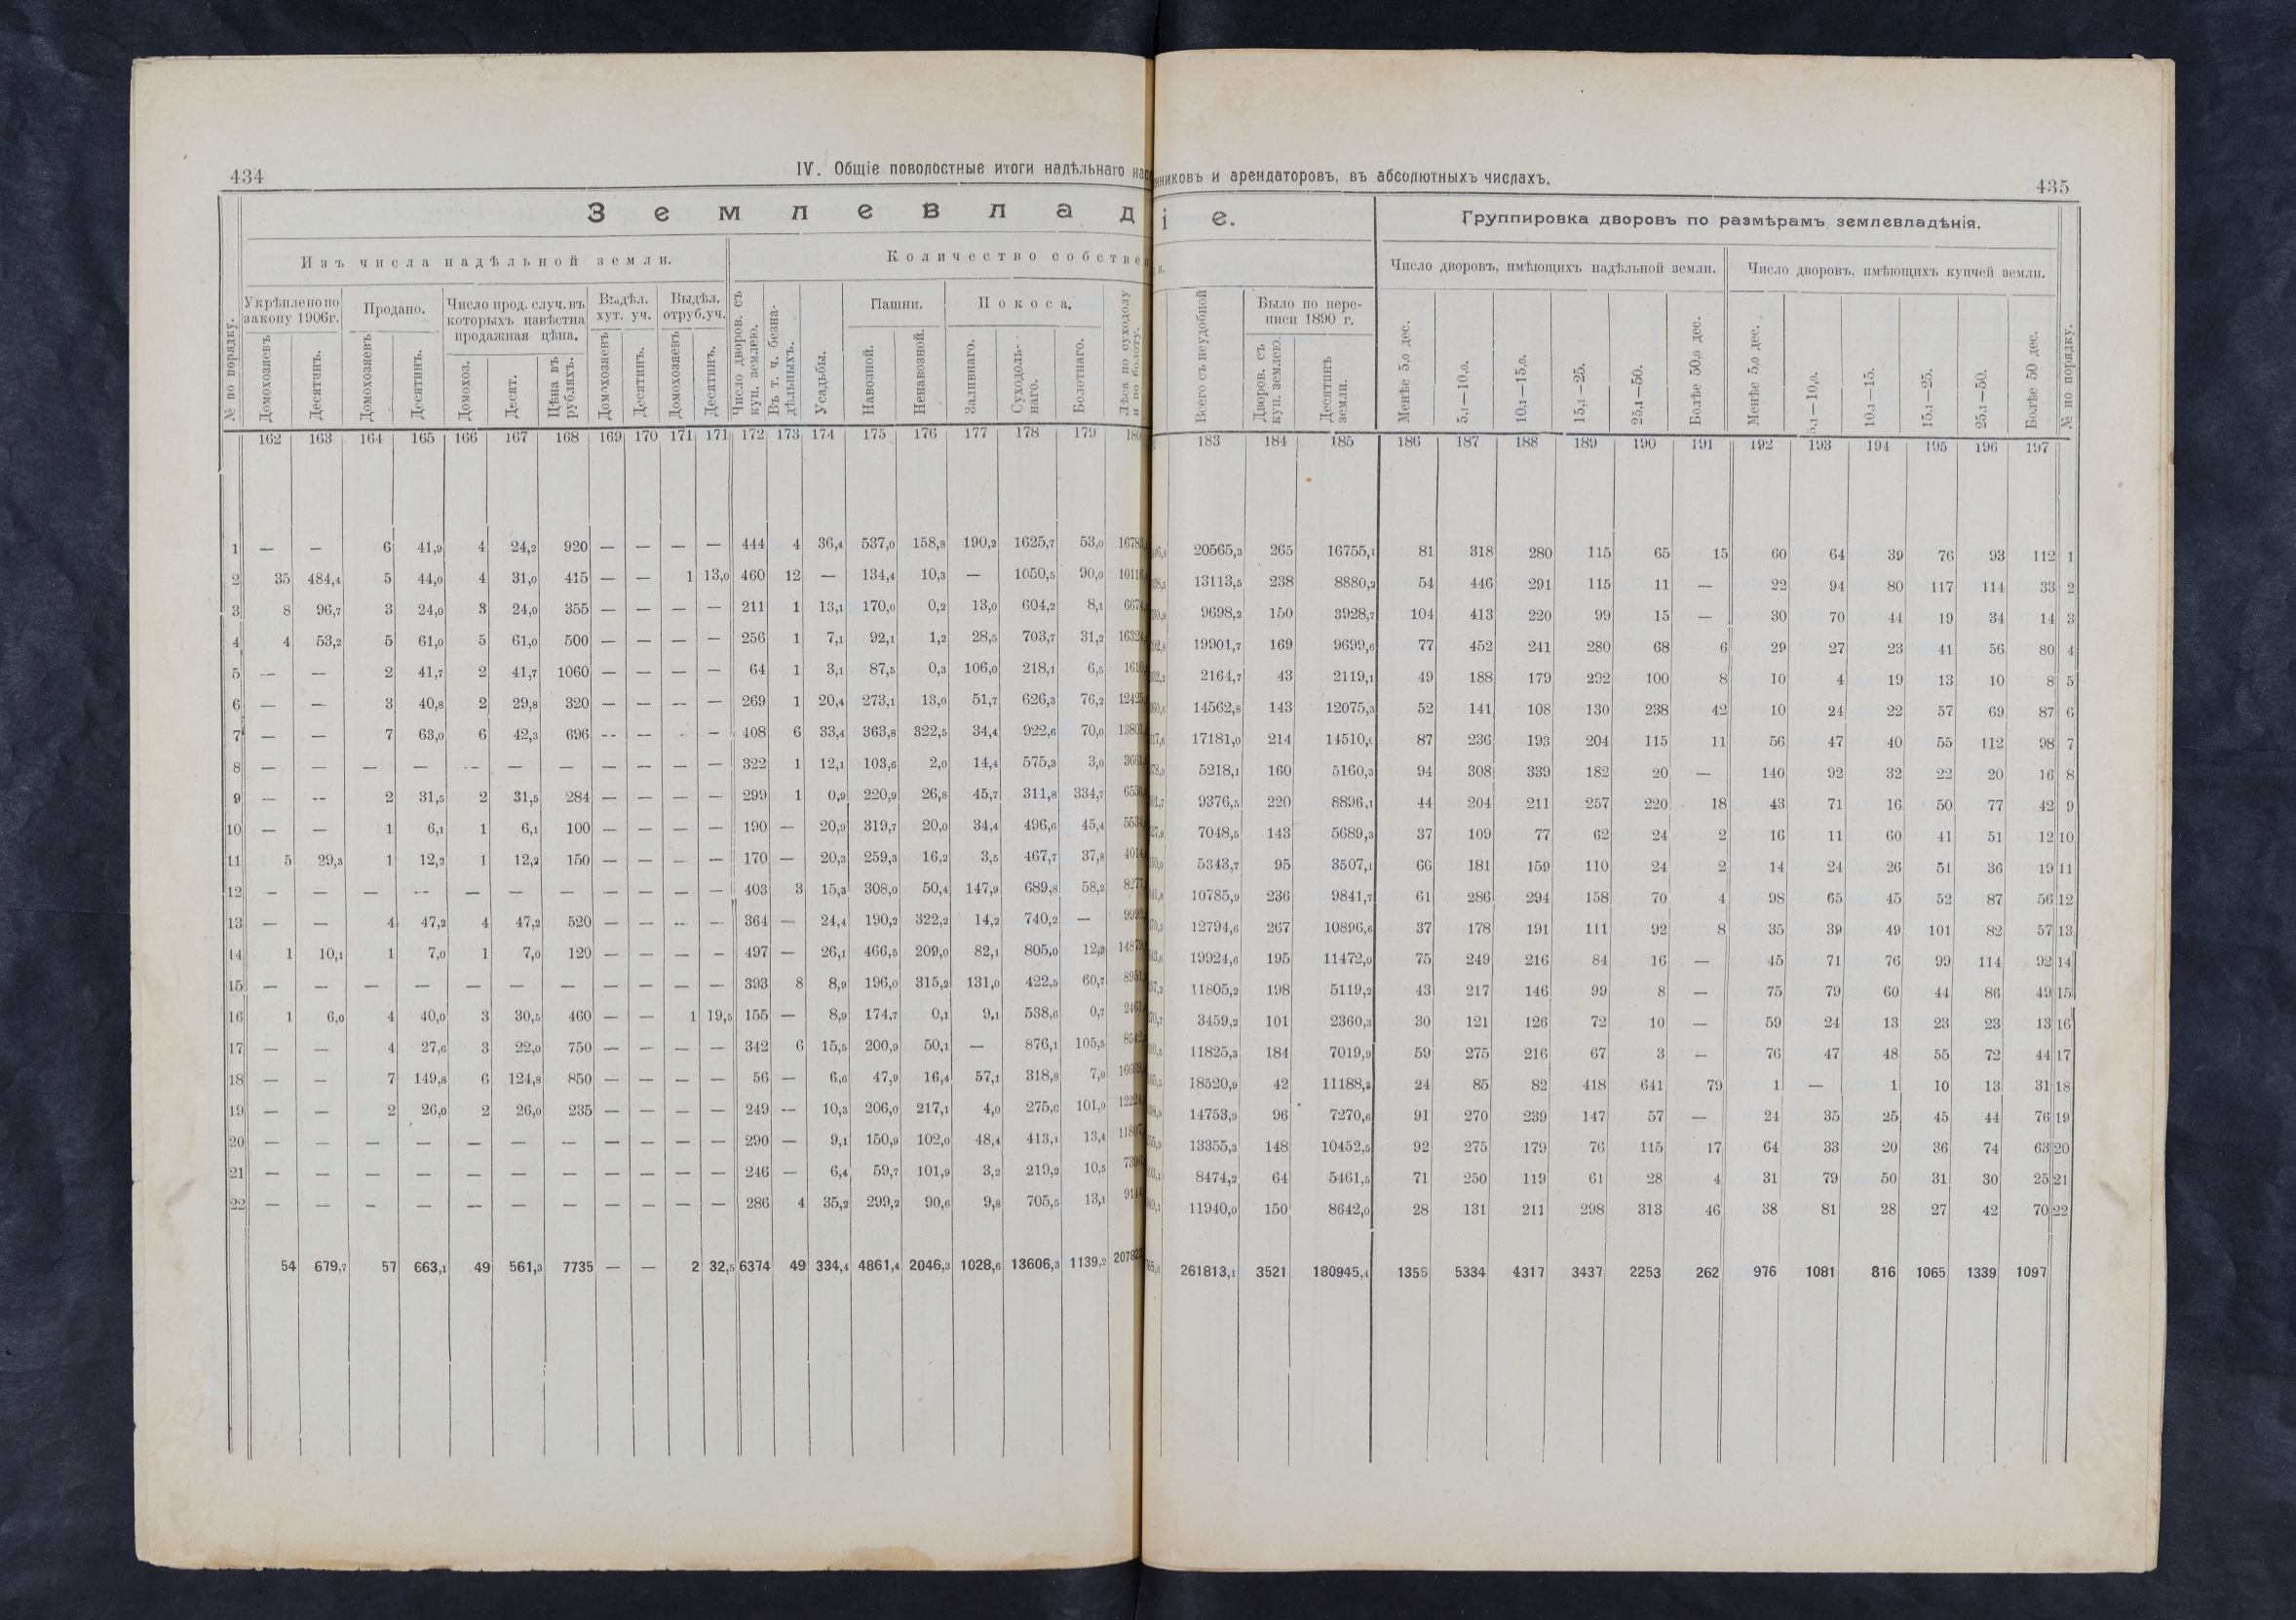 434
IV. Общіе поволостные итоги надѣльнаго
Землевлад
Изъ числа надѣльной земли.
Количество
№ по порядку.
Укрѣплено по закону 1906г.
Продано.
Число прод. случ. въ которыхъ извѣстна продажная цѣна.
Выдѣл. хут. уч.
Выдѣл. отруб. уч.
Число дворов. съ куп. землею.
Въ т. ч. безнадѣльныхъ.
Усадьбы.
Пашни.
Покоса.
Лѣса по суходолу и по болоту.
Домохозяевъ Десятинъ. Домохозяевъ Десятинъ. Домохоз. Десят. Цѣна въ рубляхъ. Домохозяевъ Десятинъ. Домохозяевъ Десятинъ. Навозной. Ненавозной. Заливнаго. Суходольнаго. Болотнаго.
162 163 164 165 166 167 168 169 170 171 171 172 173 174 175 176 177 178 179
1 — — 6 41,9 4 24,2 920 — — — — 444 4 36,4 537,0 158,8 190,2 1625,7 53,0
2 35 484,4 5 44,0 4 31,0 415 — — 1 13,0 460 12 — 134,4 10,3 — 1050,5 90,0
3 8 96,7 3 24,0 3 24,0 355 — — — — 211 1 13,1 170,0 0,2 13,0 604,2 8,1
4 4 53,2 5 61,0 5 61,0 500 — — — — 256 1 7,1 92,1 1,2 28,5 703,7 31,2
5 — — 2 41,7 2 41,7 1060 — — — — 64 1 3,1 87,5 0,3 106,0 218,1 6,5
6 — — 3 40,8 2 29,8 320 — — — — 269 1 20,4 273,1 13,0 51,7 626,3 76,2
7 — — 7 63,0 6 42,3 696 — — — — 408 6 33,4 363,8 322,5 34,4 922,6 70,0
8 — — — — — — — — — — — 322 1 12,1 103,6 2,0 14,4 575,3 3,0
9 — — 2 31,5 2 31,5 284 — — — — 299 1 0,9 220,9 26,8 45,7 311,8 334,7
10 — — 1 6,1 1 6,1 100 — — — — 190 — 20,9 319,7 20,0 34,4 496,6 45,4
11 5 29,3 1 12,2 1 12,2 150 — — — — 170 — 20,3 259,3 16,2 3,5 467,7 37,8
12 — — — — — — — — — — — 403 3 15,3 308,0 50,4 147,9 689,8 58,2
13 — — 4 47,2 4 47,2 520 — — — — 364 — 24,4 190,2 322,2 14,2 740,2 —
14 1 10,1 1 7,0 1 7,0 120 — — — — 497 — 26,1 466,5 209,0 82,1 805,0 12,3
15 — — — — — — — — — — — 393 8 8,9 196,0 315,2 131,0 422,5 60,7
16 1 6,0 4 40,0 3 30,5 460 — — 1 19,5 155 — 8,9 174,7 0,1 9,1 538,6 0,7
17 — — 4 27,6 3 22,0 750 — — — — 342 6 15,5 200,9 50,1 — 876,1 105,5
18 — — 7 149,8 6 124,8 850 — — — — 56 — 6,6 47,9 16,4 57,1 318,8 7,0
19 — — 2 26,0 2 26,0 235 — — — — 249 — 10,3 206,0 217,1 4,0 275,0 101,9
20 — — — — — — — — — — — 290 — 9,1 150,9 102,0 48,4 413,1 13,4
21 — — — — — — — — — — — 246 — 6,4 59,7 101,9 3,2 219,2 10,5
22 — — — — — — — — — — — 286 4 35,2 299,2 90,6 9,8 705,5 13,1
54 679,7 57 663,1 49 561,3 7735 — — 2 32,5 6374 49 334,4 4861,4 2046,3 1028,6 13606,3 1139,2
никовъ и арендаторовъ, въ абсолютныхъ числахъ.
435
іе.
Группировка дворовъ по размѣрамъ землевладѣнія.
Число дворовъ, имѣющихъ надѣльной земли.
Число дворовъ, имѣющихъ купчей земли.
Всего съ неудобной
Было по переписи 1890 г.
Дворов. съ куп. землею. Десятинъ земли.
Менѣе 5,0 дес. 5,1—10,0. 10,1—15,0. 15,1—25. 25,1—50. Болѣе 50,0 дес. Менѣе 5,0 дес. 5,1—10,0. 10,1—15. 15,1—25. 25,1—50. Болѣе 50 дес. № по порядку.
183 184 185 186 187 188 189 190 191 192 193 194 195 196 197
20565,3 265 16755,1 81 318 280 115 65 15 60 64 39 76 93 112 1
13113,5 238 8880,2 54 446 291 115 11 — 22 94 80 117 114 33 2
9698,2 150 3928,7 104 413 220 99 15 — 30 70 44 19 34 14 3
19901,7 169 9699,6 77 452 241 280 68 6 29 27 23 41 56 80 4
2164,7 43 2119,1 49 188 179 292 100 8 10 4 19 13 10 8 5
14562,8 143 12075,3 52 141 108 130 238 42 10 24 22 57 69 87 6
17181,0 214 87 236 193 204 115 11 56 47 40 55 112 98 7
5218,1 160 5160,3 94 308 339 182 20 — 140 92 32 22 20 16 8
9376,5 220 8896,1 44 204 211 257 220 18 43 71 16 50 77 42 9
7048,5 143 5689,3 37 109 77 62 24 2 16 11 60 41 51 12 10
5343,7 95 3507,1 66 181 159 110 24 2 14 24 26 51 36 19 11
10785,9 236 9841,7 61 286 294 158 70 4 98 65 45 52 87 56 12
12794,6 267 10896,6 37 178 191 111 92 8 35 39 49 101 82 57 13
19924,6 195 11472,0 75 249 216 84 16 — 45 71 76 99 114 92 14
11805,2 198 5119,2 43 217 146 99 8 — 75 79 60 44 86 49 15
3459,2 101 2360,3 30 121 126 72 10 — 59 24 13 23 23 13 16
11825,3 184 7019,9 59 275 216 67 3 — 76 47 48 55 72 44 17
18520,9 42 11188,3 24 85 82 418 641 79 1 — 1 10 13 31 18
14753,9 96 7270,6 91 270 239 147 57 — 24 35 25 45 44 76 19
13355,3 148 10452,5 92 275 179 76 115 17 64 33 20 36 74 63 20
8474,2 64 5461,5 71 250 119 61 28 4 31 79 50 31 30 25 21
11940,0 150 8642,0 28 131 211 298 313 46 38 81 28 27 42 70 22
261813,1 3521 180945,4 1356 5334 4317 3437 2253 262 976 1081 816 1065 1339 1097